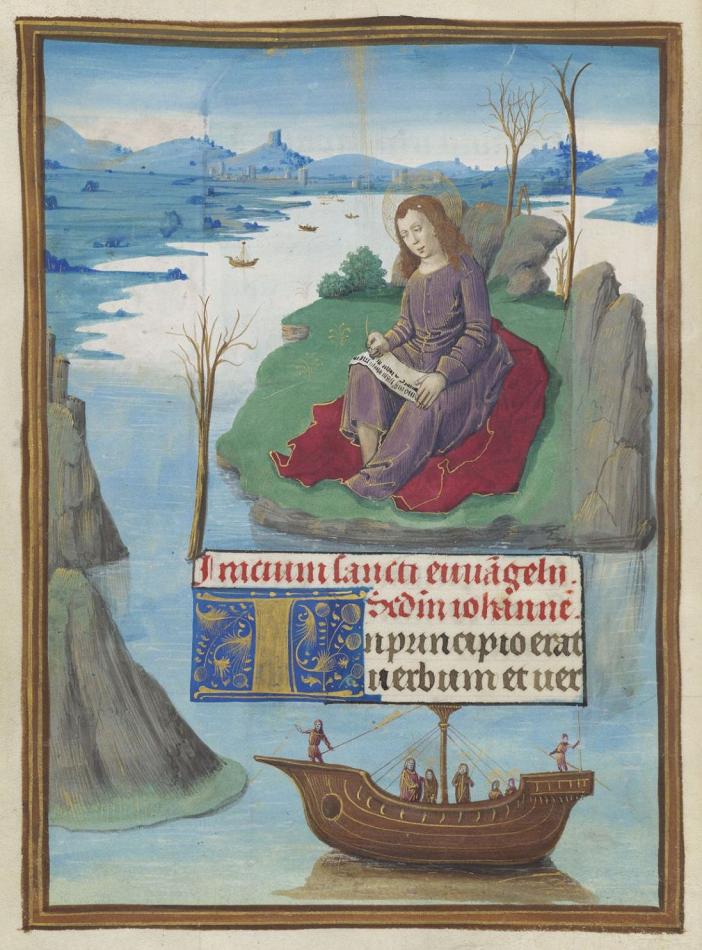 Inicium sancti euuāgelii.
Scdm iohannē.
In principio erat
uerbum et uer